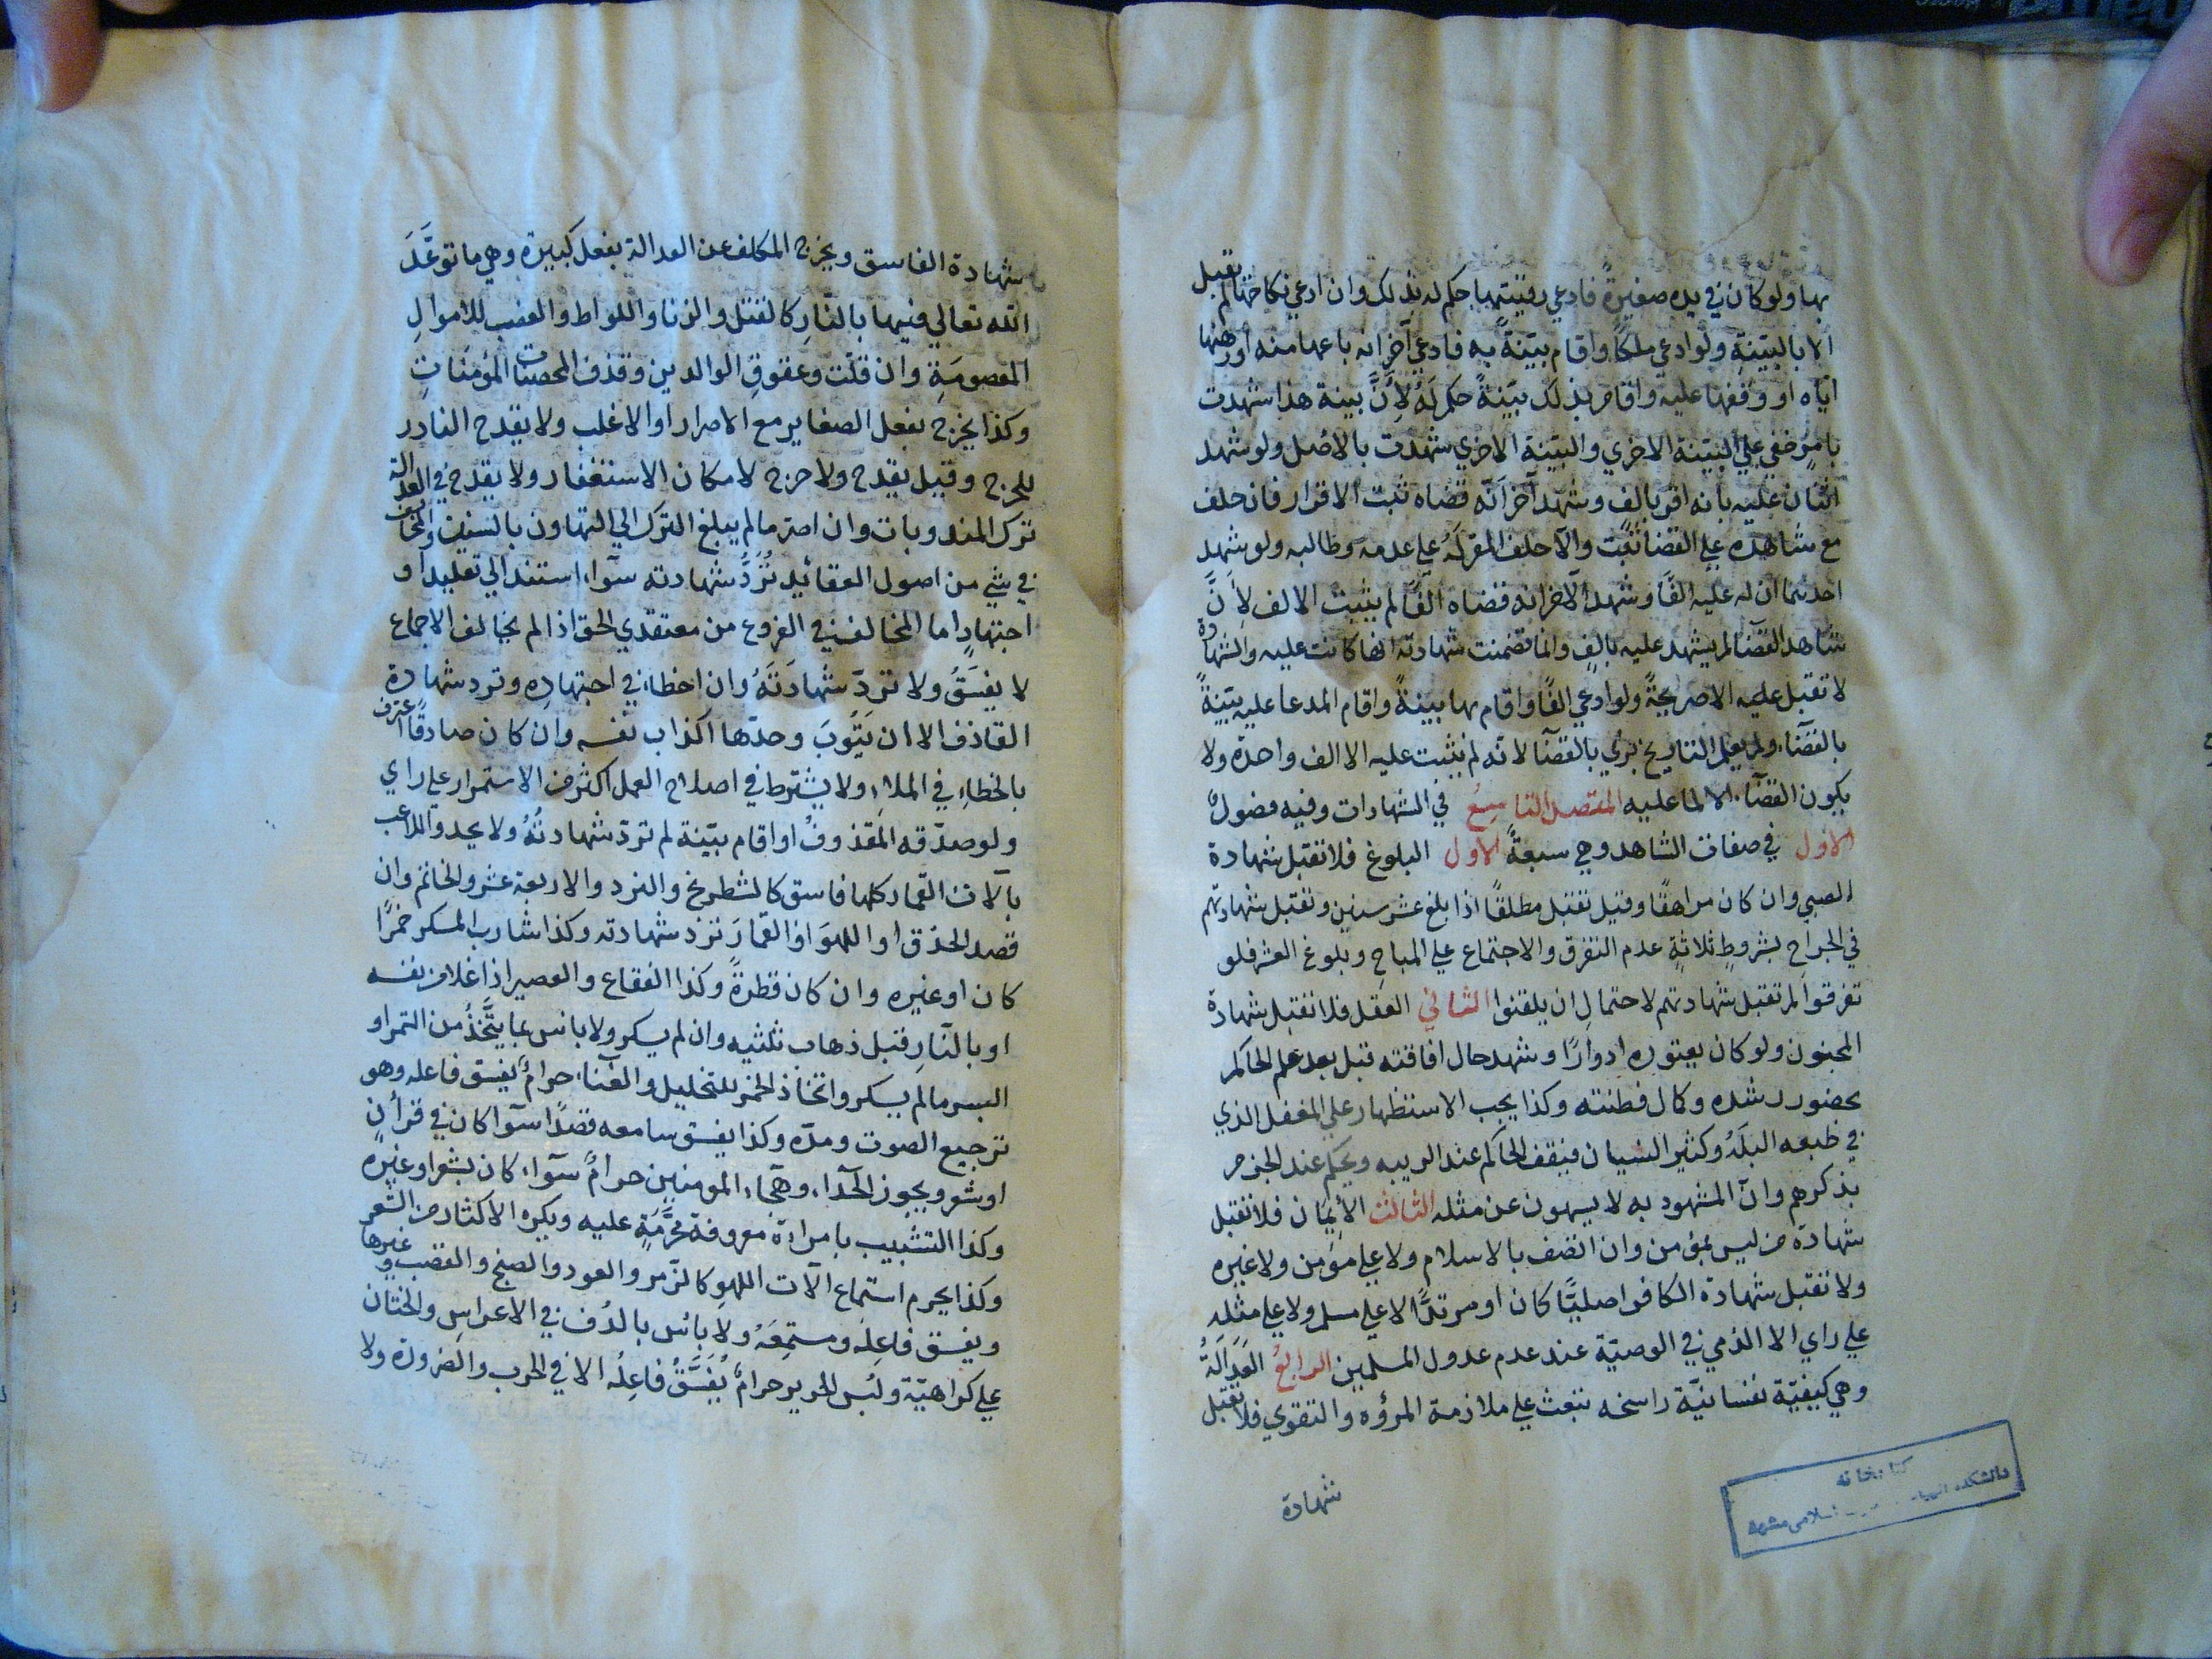 بها ولو كان في يده صغيرة فادعي رقيتها حكم له بذلك وان ادعي نكاحها لم تقبل
الا بالبيّنةِ ولو ادعي ملكًا واقام بيّنةً به فادعي آخر انه باعها منه او رهنها
ايّاه او وقفها عليه واقام بذلك بيّنةً حكم لَهُ لِأَنَّ بينة هذا شهدت
بامرٍ خفي علي البيّنة الاخري والبيّنة الاخري شهدت بالاصل ولو شهد
اثنان عليه بانه اقر بالف وشهد آخر انّه قضاه ثبت الاقرار فان حلف
مع شاهده علي القضا ثبت والّا حلف المقر لَهُ علي عدمه وطالبه ولو شهد
احدهما ان له عليه الفًا وشهد الآخر انه قضاه الفًا لم يثبت الالف لِأَنَّ
شاهد القضآ لم يشهد عليه بالفٍ وانما تضمنت شهادته انها كانت عليه والشهادة
لا تقبل عليه الا صريحةً ولو ادعي الفًا واقام بها بينةً واقام المدعا عليه بيّنةً
بالقضآء ولم يعلم التاريخ برئ بالقضآ لانّه لم يثبت عليه الا الف واحدة ولا
يكون القضآء الا لما عليه المقصد التاسعُ في الشهادات وفيه فصول
الاول في صفات الشاهد وهي سبعةً الاول البلوغ فلا تقبل شهادة
الصبي وان كان مراهقًا وقيل تقبل مطلقًا اذا بلغ عشر سنين وتقبل شهادتهم
في الجراحِ بشروطٍ ثلاثةٍ عدم التفرق والاجتماع علي المباح وبلوغ العشر فلو
تفرقوا لم تقبل شهادتهم لاحتمالِ ان يلقنوا الثاني العقل فلا تقبل شهادة
المجنون ولو كان يعتوره ادوارًا وشهد حال افاقته قبل بعد علم الحاكم
بحضور رشده وكمال فطنته وكذا يجب الاستظهار علي المغفل الذي
في طبعه البلَهُ وكثير النسيان فيقف الحاكم عند الريبه ويحكم عند الجزم
بذكرهم وانّ المشهود به لا يسهون عن مثله الثالث الأِيَمان فلا تقبل
شهادة من ليس بمؤمن وان اتصف بالاسلام ولا علي مؤمن ولا غيره
ولا تقبل شهادة الكافر اصليًّا كان او مرتدًّا الا علي مسلم ولا علي مثله
علي راي الا الذمي في الوصيّة عند عدم عدول المسلمين الرابعُ العَدَالَةُ
وهي كيفيّة نفسانيّة راسخه تبعث علي ملازمة المروّه والتقوي فلا تقبل
شهادة
كتابخانه
دانشكده الهيات اسلامى مشهد
شهادة الفاسق ويخرج المكلف عن العدالة بفعل كبيرة وهي ما توعَّدَ
اللّه تعالي فيها بالنّارِ كالقتل والزنا واللواط والغصب للاموالِ
المعصومَةِ وان قلّت وعقوقِ الوالدين وقذف المحصنات المؤمَناتِ
وكذا يخرج بفعل الصغاير مع الاصرار او الاغلب ولا يقدح النادر
للحرج وقيل يقدح ولا حرج لامكان الاستغفار ولا يقدح في العدالة
ترك المندوبات وان اصرّ ما لم يبلغ الترك الي التهاون بالسنن والمخالف
في شئ من اصول العقائد تُرَدُّ شهادته سوآء استند الي تقليد او
اجتهادٍ اما المخالف في الفروع من معتقدي الحق اذا لم يخالف الاجماع
لا يفسَقُ ولا تردّ شهادَتَهُ وان اخطاء في اجتهادِه وترد شهادة
القاذف الا ان يَتُوبَ وحدّها اكذاب نفسه وان كان صادقًا اعترف
بالخطاءِ في الملاءِ ولا يشترط في اصلاح العمل اكثر من الاستمرار علي راي
ولو صدّقه المقذوفُ او اقام بيّنة لم تردّ شهادتُهُ ولا يحد واللاعب
بآلات القمار كلها فاسق كالشطرنج والنرد والاربعة عشر والخاتم وان
قصد الحذق او اللهوَ او القمارَ ترد شهادته وكذا شارب المسكر خمرًا
كان او غيره وان كان قطرةً وكذا الفقاع والعصير اذا غلا من نفسه
او بالنّارِ قبل ذهاب ثلثيه وان لم يسكر ولا باس بما يتّخذُ من التمر او
البسر ما لم يسكر واتخاذ الخمر للتخليل والغنآء حرامٌ يفسق فاعله وهو
ترجيع الصوت ومدّه وكذا يفسق سامعه قصدًا سوآ كان في قرآنٍ
او شعر ويجوز الحدآء وهجآء المومنين حرامً سوآء كان بشعر او غيره
وكذا التشبيب بامراة معروفة محرَّمَةٍ عليه ويكره الاكثار من الشعر
وكذا يحرم استماع آلات اللهوِ كالزّمر والعود والصنج والقصب وغيرها
ويفسق فاعِله ومستمعَهُ ولا بائس بالدُف في الاعراسِ والختان
علي كراهيّة ولبُس الحرير حرامٌ يُفَسَّقُ فاعِلُه الا في الحرب والضرورة ولا